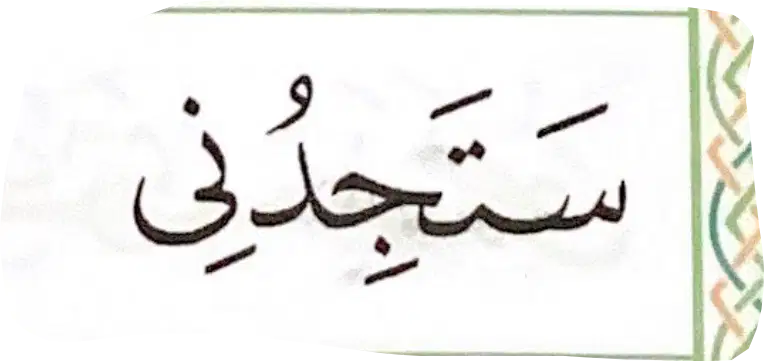 سَتَجِدُنِى